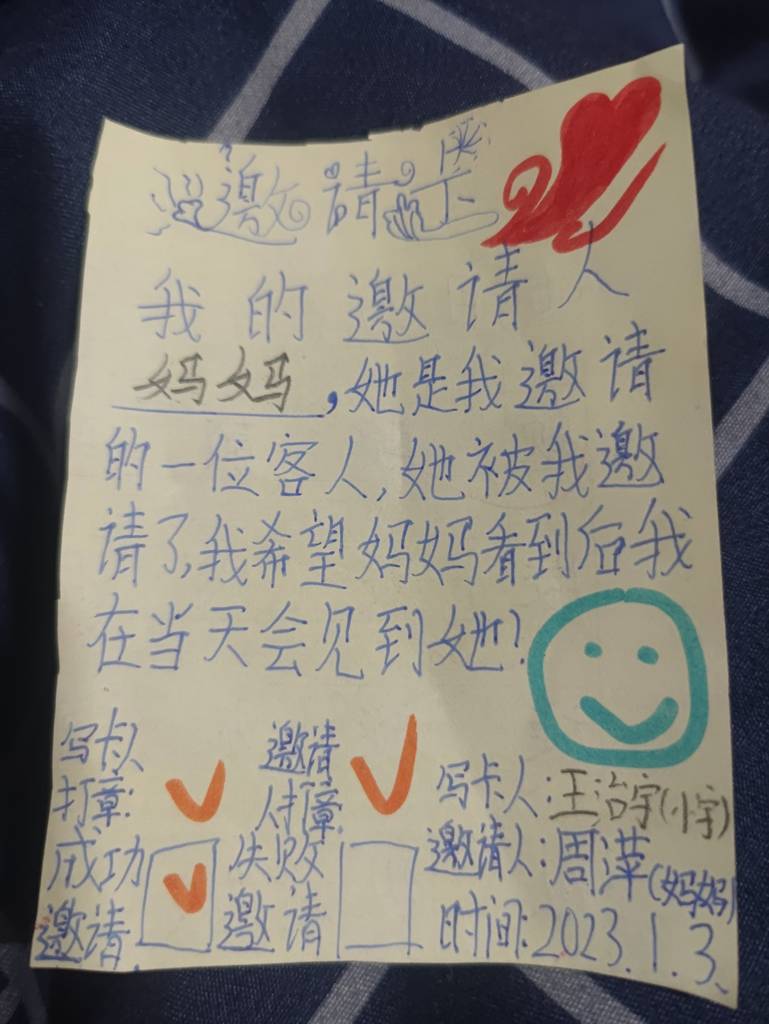 邀请卡
我的邀请人
妈妈,她是我邀请
的一位客人,她被我邀
请了,我希望妈妈看到后我
在当天会见到她!
写卡人
打章:
邀请
人打章:
成功
邀请
失败
邀请
写卡人:王治宇(小宇)
邀请人:周萍(妈妈)
时间:2023.1.3.